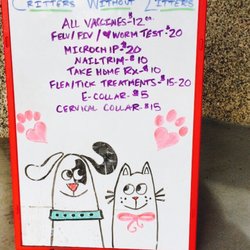 CRITTERS WITHOUT LITTERS
ALL VACCINES-$12.00
FELV/FIV/♥WORM TEST-$20
MICROCHIP-$20
NAIL TRIM-$10
TAKE HOME RX-$10
FLEA/TICK TREATMENTS-$15-20
E-COLLAR-$5
CERVICAL COLLAR-$15